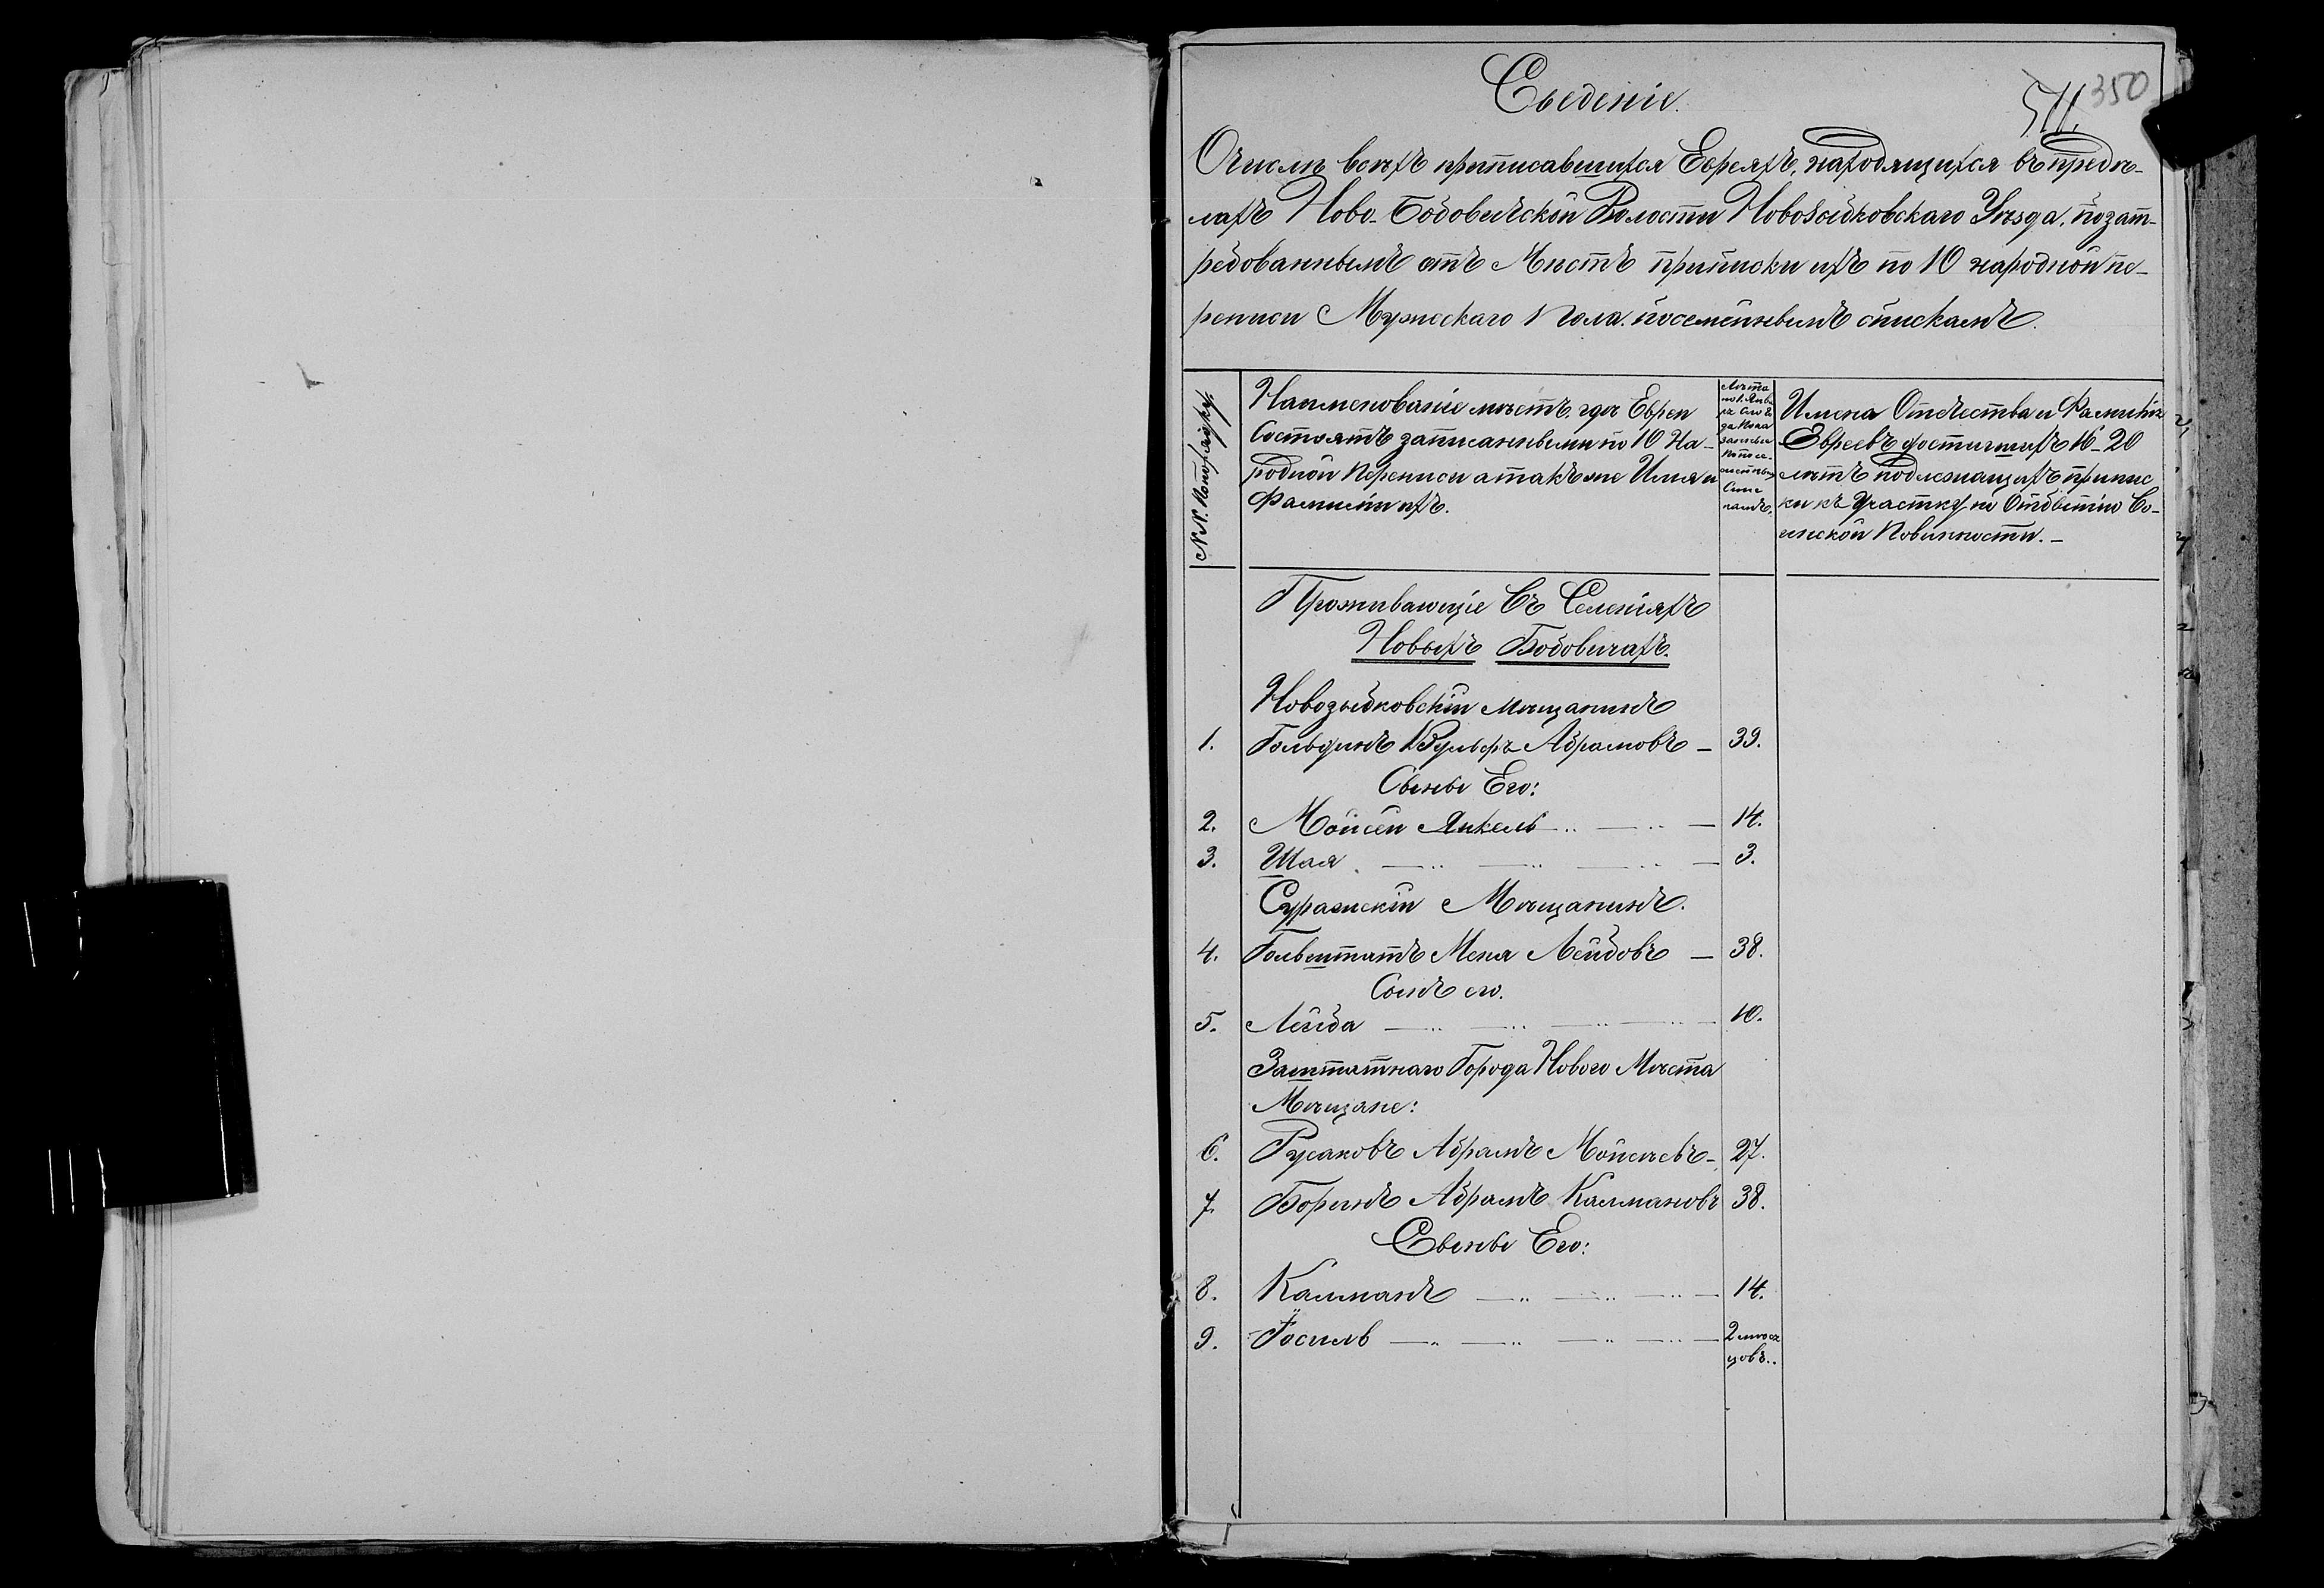 Сведенiе.
511. 350
О числѣ всѣхъ приписавшихся Евреяхъ, находящихся въ предѣ-
лахъ Ново-Бобовичской Волости Новозыбковскаго Уѣзда, по зат-
ребованнымъ отъ Мѣстъ приписки ихъ по 10 народной пе-
реписи Мужескаго Пола посемейнымъ спискамъ.
№№ по порядку
Наименованiе мѣстъ гдѣ Евреи
Состоятъ записанными по 10 На-
родной Переписи а также Имя и
Фамилiи ихъ.
Лѣта
по 1. Янва
ря
показанны
по посе-
мѣстнымъ
Спис
камъ.
Имена Отчества и Фамилiи
Евреевъ достигшихъ 16-20
лѣтъ подлежащихъ припис
ки къ участку по Отбытiю Во-
инской Повинности.
Проживающiе Въ Селенiяхъ
Новыхъ Бобовичахъ.
Новозыбковскiй мѣщанинъ
1. Гольдинъ Вульфъ Абрамовъ – 39.
Сыны Его:
2. Мойсей Янкель – 14.
3. Шая – 3.
Суражскiй Мѣщанинъ.
4. Гольштатъ Меня Лейбовъ – 38.
Сынъ его.
5. Лейба – 10.
Заштатнаго Города Новаго Мѣста
Мѣщане:
6. Русаковъ Абрамъ Мойсеевъ – 27.
7. Боринъ Абрамъ Калмановъ 38.
Сыны Его:
8. Калманъ – 14.
9. Iосиль – 2 мѣся
цовъ.